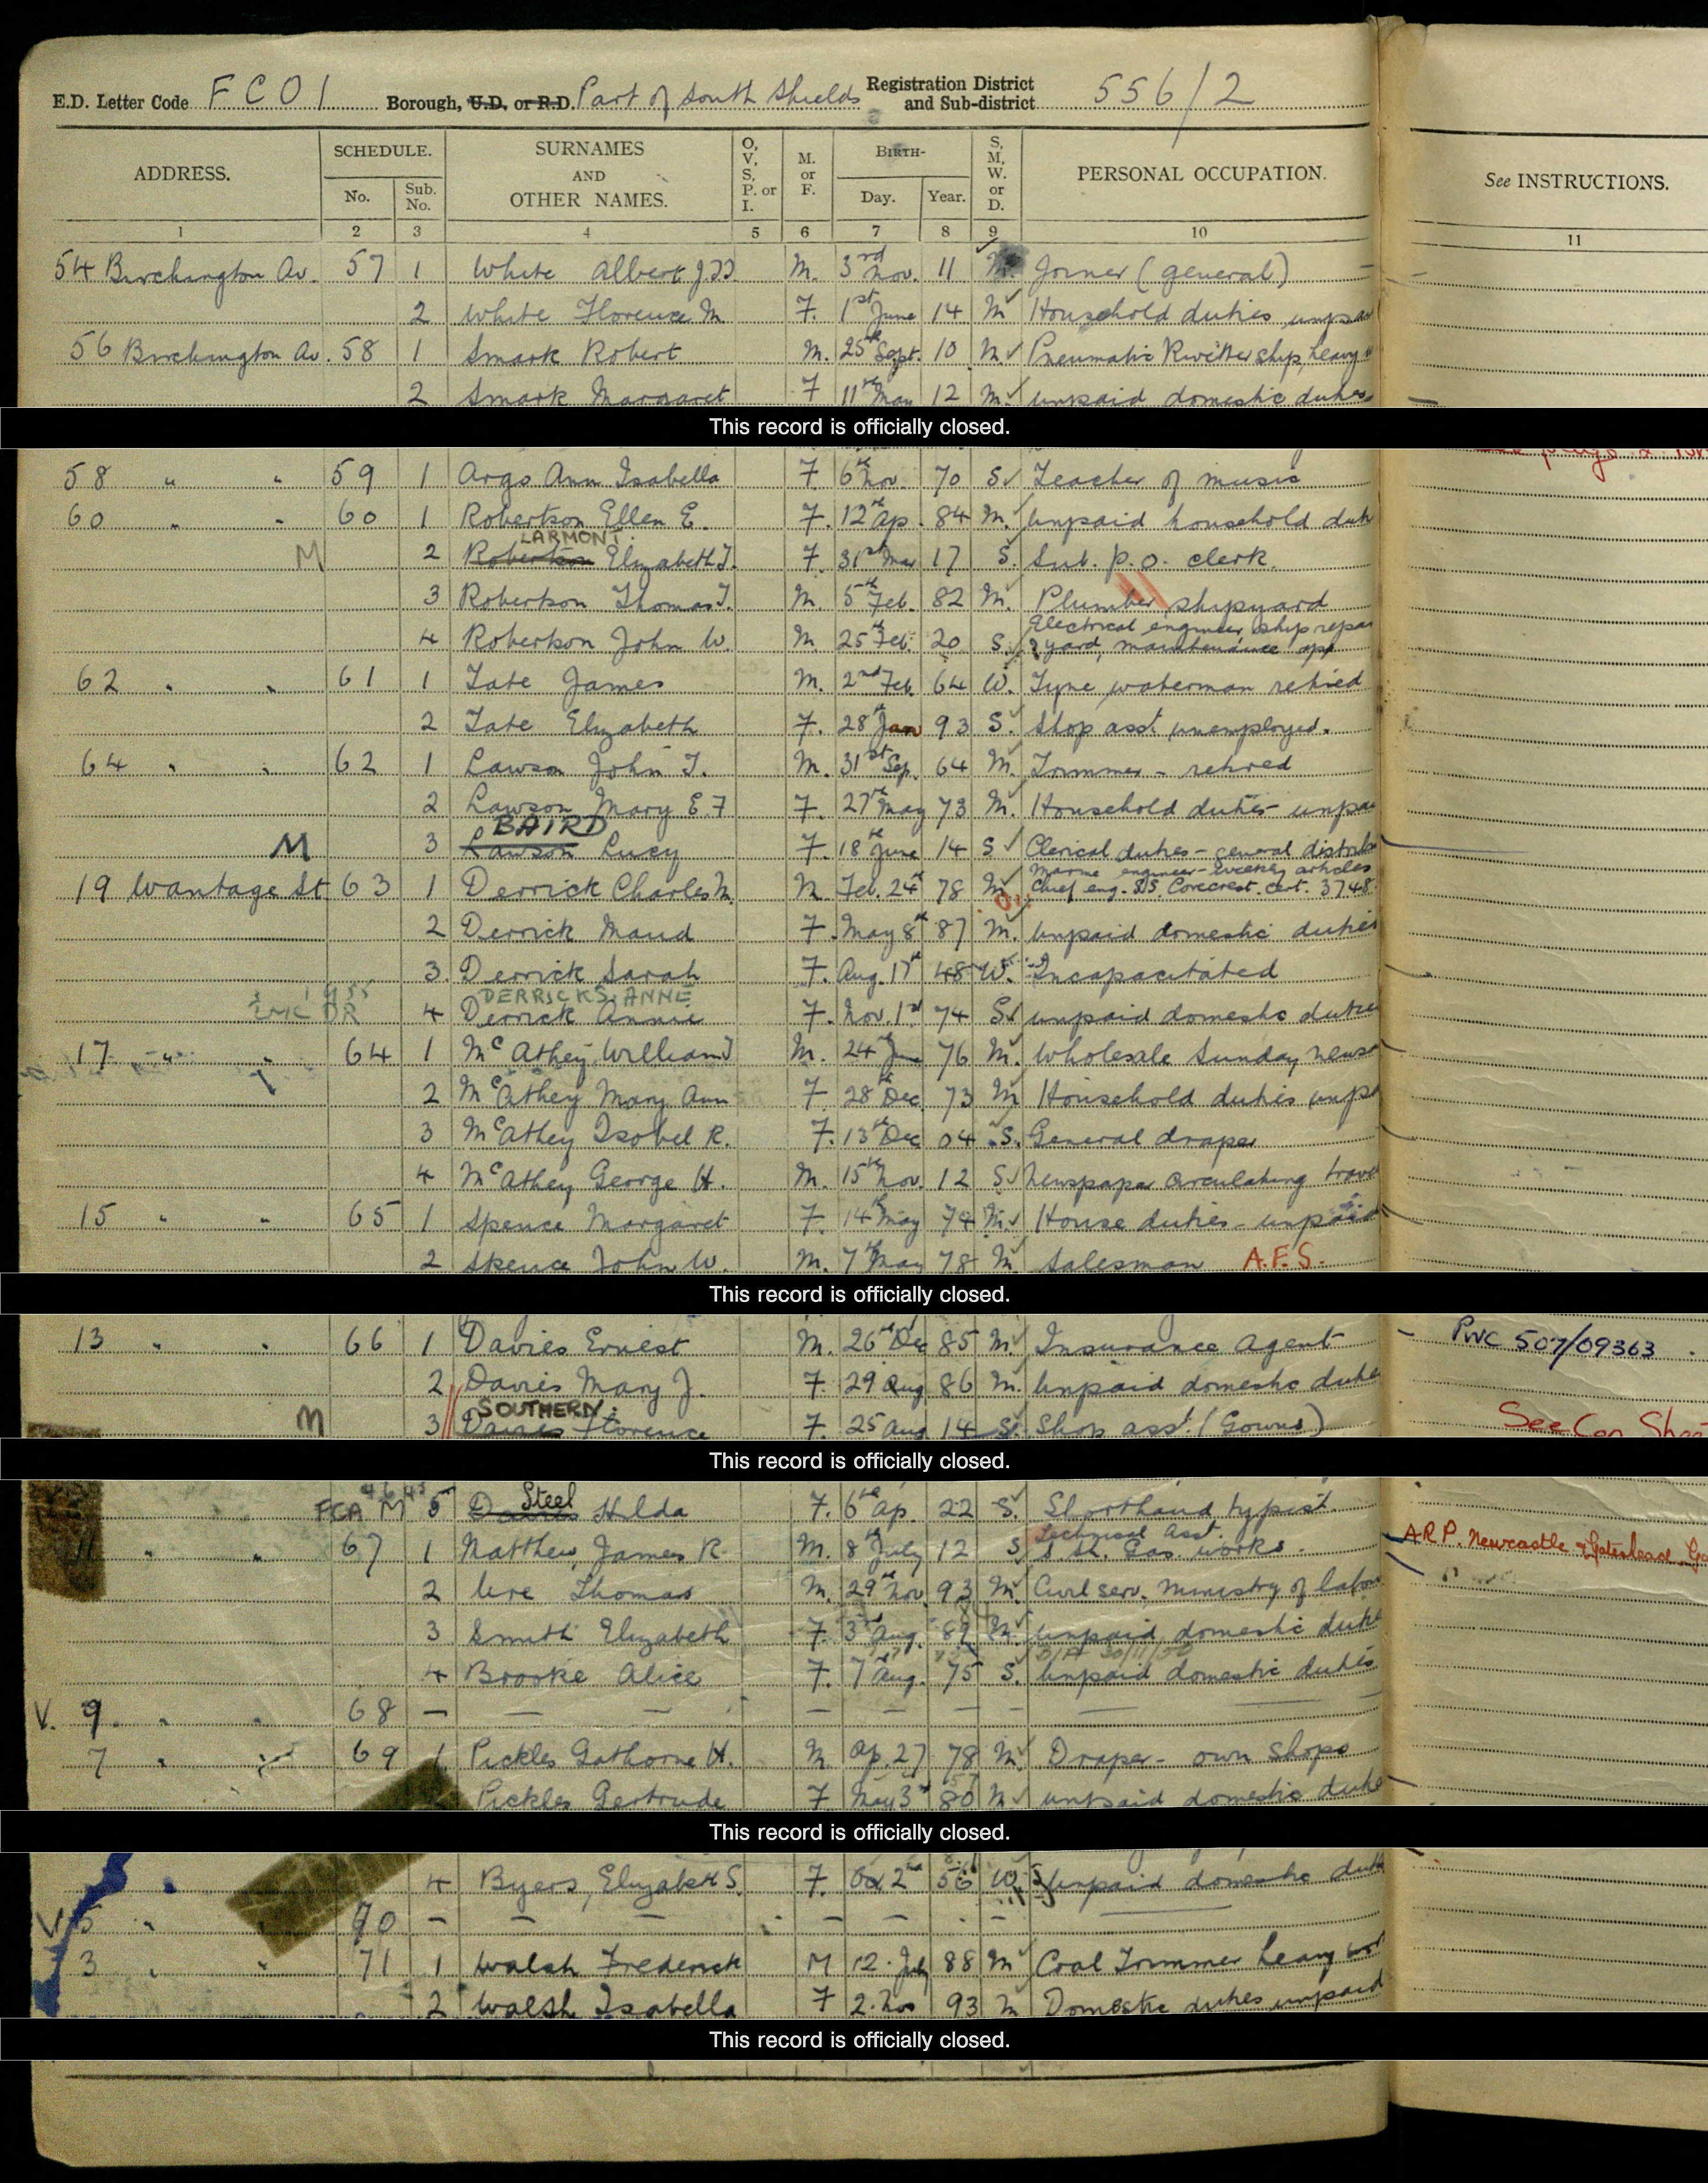 E.D. Letter Code F C O I Borough, U.D. or R.D. Part of South Shields Registration District and Sub-district 556/2
ADDRESS. SCHEDULE. No. Sub. No. SURNAMES AND OTHER NAMES. O, V, S, P. or I. M. or F. BIRTH- Day. Year. S, M, W. or D. PERSONAL OCCUPATION. See INSTRUCTIONS.
1 2 3 4 5 6 7 8 9 10 11
54 Birchington Av. 57 1 White Albert M. 3rd Nov. 11 M Joiner (general)
2 White Florence M F. 1st June 14 M Household duties
56 Birchington Av. 58 1 Smark Robert M. 25th Sept. 10 M Pneumatic Rivitter ship, heavy
2 Smark Margaret F 11th May 12 M. unpaid domestic duties
This record is officially closed.
58 " " 59 1 Argo Ann Isabella F. 6th Nov. 70 S Teacher of music
60 " " 60 1 Robertson Ellen E. F. 12th Ap. 84 M. unpaid household dut
LARMONT.
M 2 Robertson Elizabeth J. F. 31st Mar 17 S. Sub. P.O. clerk.
3 Robertson Thomas J. M. 5th Feb. 82 M. Plumber shipyard
Electrical engineer ship repai
4 Robertson John W. M 25 Feb. 20 S. yard, maintenance app
62 " " 61 1 Tate James M. 2nd Feb. 64 W. Tyne waterman retired
2 Tate Elizabeth F. 28th Jan 93 S. Shop asst. unemployed.
64 " " 62 1 Lawson John T. M. 31st Sep. 64 M. Trimmer - retired
2 Lawson Mary E. F F. 27th May 73 M. Household duties - unpa
BAIRD
M 3 Lawson Lucy F. 18th June 14 S Clerical duties - general distrib
Marine engineer - weekly articles
19 Wantage St 63 1 Derrick Charles M. M Feb. 24th 78 M Chief eng. S.S. Corecrest. cert. 3748
2 Derrick Maud F. May 8th 87 M. unpaid domestic duties
3. Derrick Sarah F. Aug. 17th 48 W. Incapacitated
DERRICKS. ANNE
4 Derrick Annie F. Nov. 1st 74 S. unpaid domestic duties
17 " " 64 1 McAthey William J M. 24th June 76 M. Wholesale Sunday news
2 McAthey Mary Ann F. 28th Dec 73 M Household duties unpa
3 McAthey Isobel R. F. 13th Dec 04 S. General draper
4 McAthey George H. M. 15th Nov. 12 S Newspaper circulating trave
15 " " 65 1 Spence Margaret F. 14th May 74 M House duties - unpaid
2 Spence John W. M. 7th May 78 M Salesman A.F.S.
This record is officially closed.
13 " " 66 1 Davies Ernest M. 26th Dec 85 M. Insurance Agent PWC 507/09363
2 Davies Mary J. F. 29 Aug 86 M. Unpaid domestic dutie
SOUTHERN.
M 3 Davies Florence F. 25 Aug 14 S. Shop asst. (Gowns) See Con Shee
This record is officially closed.
Steel
FCA M 5 Davies Hilda F. 6th Ap. 22 S. Shorthand typist.
Technical Asst.
11 " " 67 1 Matthew James R M. 8th July 12 S S. Sh. Gas works. A.R.P. Newcastle & Gateshead Ga
2 Ure Thomas M. 29th Nov. 93 M. Civil serv. Ministry of labou
3 Smith Elizabeth F. 3rd Aug. 89 M. unpaid domestic duti
4 Brooke Alice F. 7th Aug. 75 S. Unpaid domestic duties
V. 9. " " 68 - - - - - - -
7 " " 69 1 Pickles Gathorne H. M. Ap. 27 78 M Draper - own shops
Pickles Gertrude F May 3rd 80 M unpaid domestic dutie
This record is officially closed.
4 Byers, Elizabeth S. F. Oct 2nd 56 W. unpaid domestic duti
V. 5 " 70 - - - - - - -
3 " " 71 1 Walsh Frederick M 12. July 88 M Coal Trimmer heavy wor
2 Walsh Isabella F 2. Nov 93 M Domestic duties unpaid
This record is officially closed.